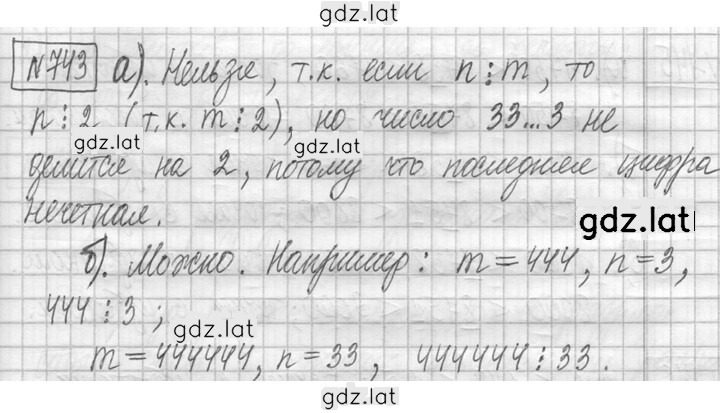 gdz.lat
№743 а). Нельзя, т.к. если n⋮m, то
n⋮2 (т.к. m⋮2), но число 33...3 не
gdz.lat gdz.lat
делится на 2, потому что последняя цифра
нечетная.
gdz.lat
б). Можно. Например: m=444, n=3,
444⋮3;
gdz.lat
m=444444, n=33, 444444⋮33.
gdz.lat